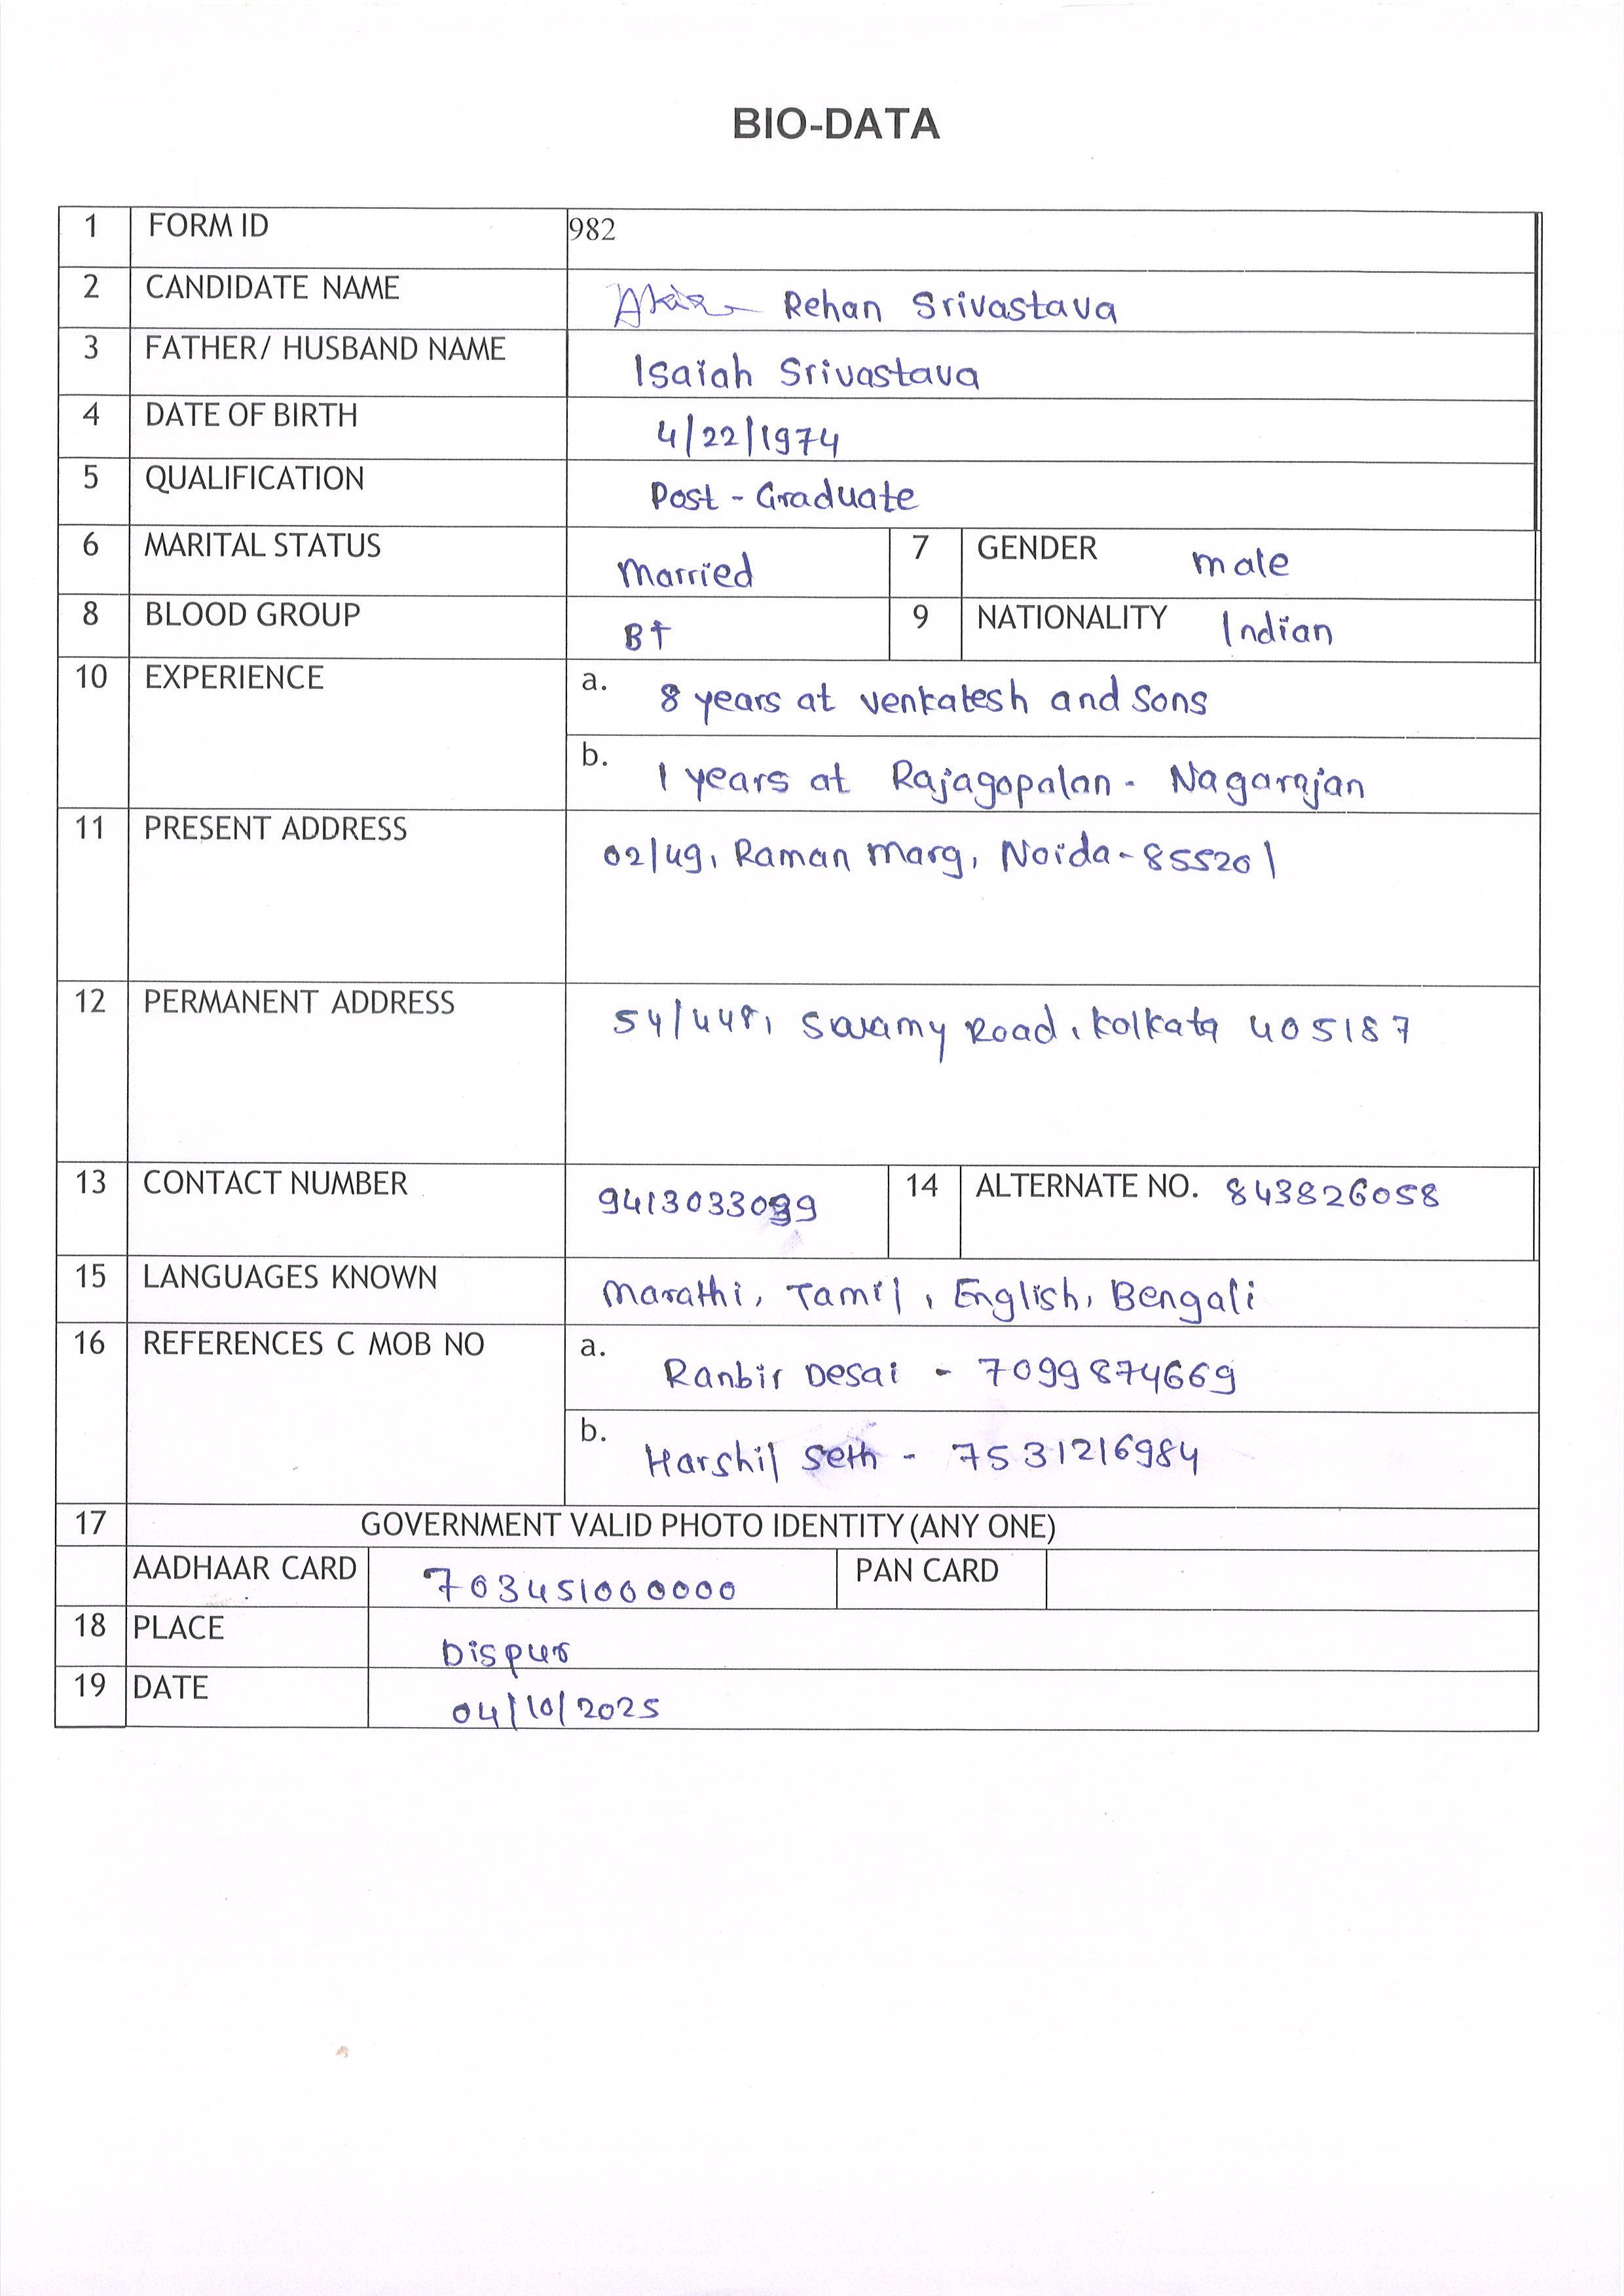 BIO-DATA
1 FORM ID 982
2 CANDIDATE NAME Rehan Srivastava
3 FATHER/ HUSBAND NAME Isaiah Srivastava
4 DATE OF BIRTH 4/22/1974
5 QUALIFICATION Post - Graduate
6 MARITAL STATUS Married 7 GENDER male
8 BLOOD GROUP B+ 9 NATIONALITY Indian
10 EXPERIENCE a. 8 years at venkatesh and Sons
b. 1 years at Rajagopalan - Nagarajan
11 PRESENT ADDRESS 02/49, Raman Marg, Noida - 855201
12 PERMANENT ADDRESS Swamy Road, Kolkata 405187
13 CONTACT NUMBER 14 ALTERNATE NO. 843826058
15 LANGUAGES KNOWN Marathi, Tamil, English, Bengali
16 REFERENCES C MOB NO a. Ranbir Desai - 7099874669
b. Harshil Seth - 7531216984
17 GOVERNMENT VALID PHOTO IDENTITY (ANY ONE)
AADHAAR CARD 703451000000 PAN CARD
18 PLACE Dispur
19 DATE 04/10/2025